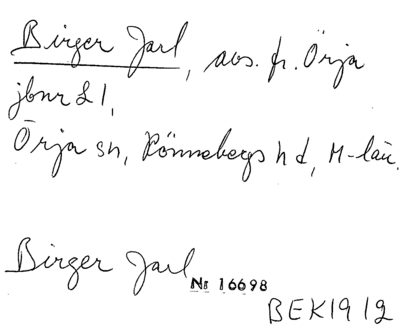 Birger Jarl, avs. fr. Örja
jbnr 2 1,
Örja sn, Rönnebergs hd, M-län.
Birger Jarl
No 16698
BEK 1912